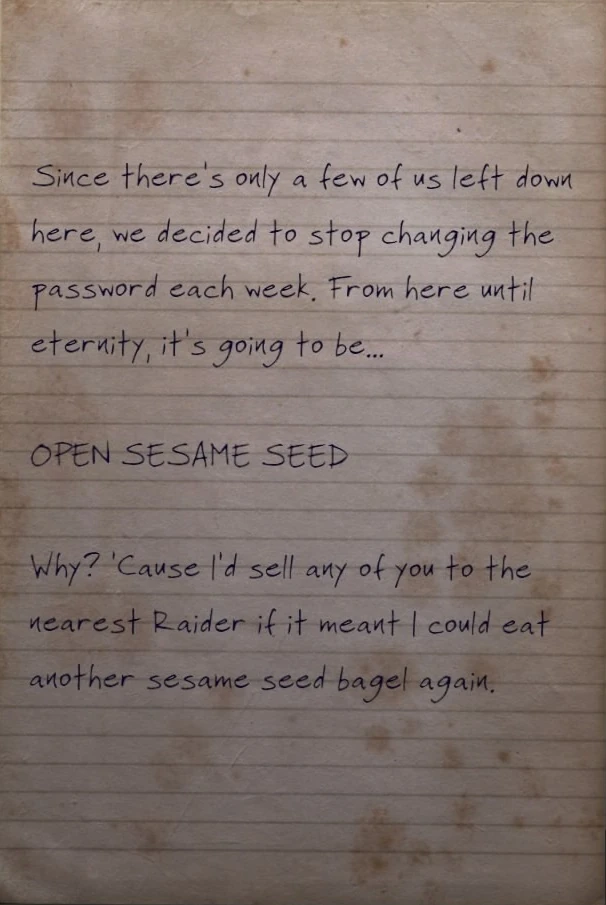 Since there's only a few of us left down
here, we decided to stop changing the
password each week. From here until
eternity, it's going to be...
OPEN SESAME SEED
Why? 'Cause I'd sell any of you to the
nearest Raider if it meant I could eat
another sesame seed bagel again.